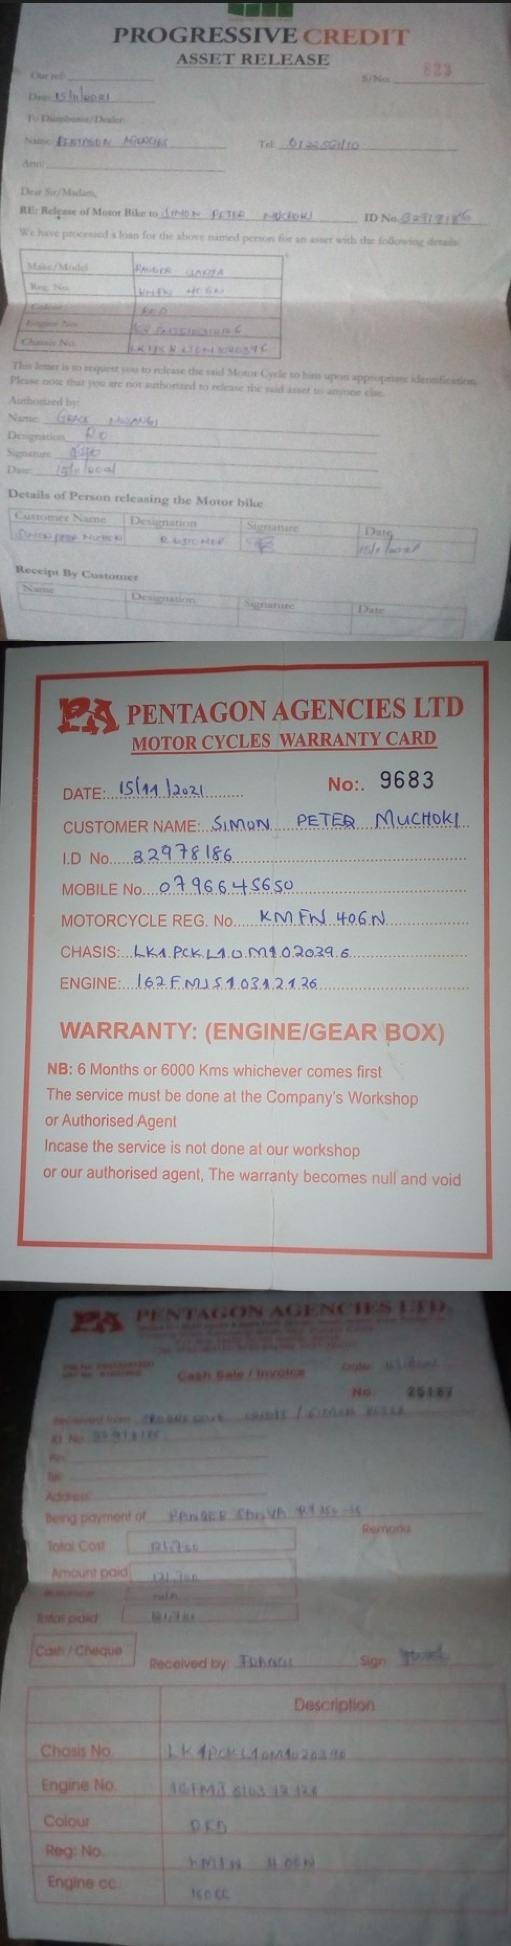 PROGRESSIVE CREDIT
ASSET RELEASE
Our ref:
S/No. 823
Date 15/11/2021
To Distributor/Dealer:
Name: PENTAGON AGENCIES Tel:
Attn:
Dear Sir/Madam,
RE: Release of Motor Bike to SIMON PETER MUCHOKI ID No. 32978186
We have processed a loan for the above named person for an asset with the following details:
Make/Model RANGER
Reg. No. KMFN 406N
Colour RED
Engine No.
Chassis No.
This letter is to request you to release the said Motor Cycle to him upon appropriate identification.
Please note that you are not authorized to release the said asset to anyone else.
Authorized by:
Name: GRACE MWANGI
Designation RO
Signature
Date: 15/11/2021
Details of Person releasing the Motor bike
Customer Name Designation Signature Date
SIMON PETER MUCHOKI CUSTOMER 15/11/2021
Receipt By Customer
Name Designation Signature Date
PA PENTAGON AGENCIES LTD
MOTOR CYCLES WARRANTY CARD
DATE: 15/11/2021 No:. 9683
CUSTOMER NAME: SIMON PETER MUCHOKI
I.D No. 32978186
MOBILE No. 0796645650
MOTORCYCLE REG. No. KMFN 406N
CHASIS: LK1PCKL10M1020396
ENGINE: 162FMJS10312126
WARRANTY: (ENGINE/GEAR BOX)
NB: 6 Months or 6000 Kms whichever comes first
The service must be done at the Company's Workshop
or Authorised Agent
Incase the service is not done at our workshop
or our authorised agent, The warranty becomes null and void
PA PENTAGON AGENCIES LTD.
Cash Sale / Invoice Date
No. 25187
Received from PROGRESSIVE CREDIT / SIMON PETER
ID No. 32978186
Tel:
Address:
Being payment of RANGER
Total Cost 121,700 Remarks
Amount paid 121,700
Balance
Total paid 121,700
Cash / Cheque Received by Sign
Description
Chasis No. LK1PCKL10M1020396
Engine No.
Colour RED
Reg: No. KMFN 406N
Engine cc. 150CC